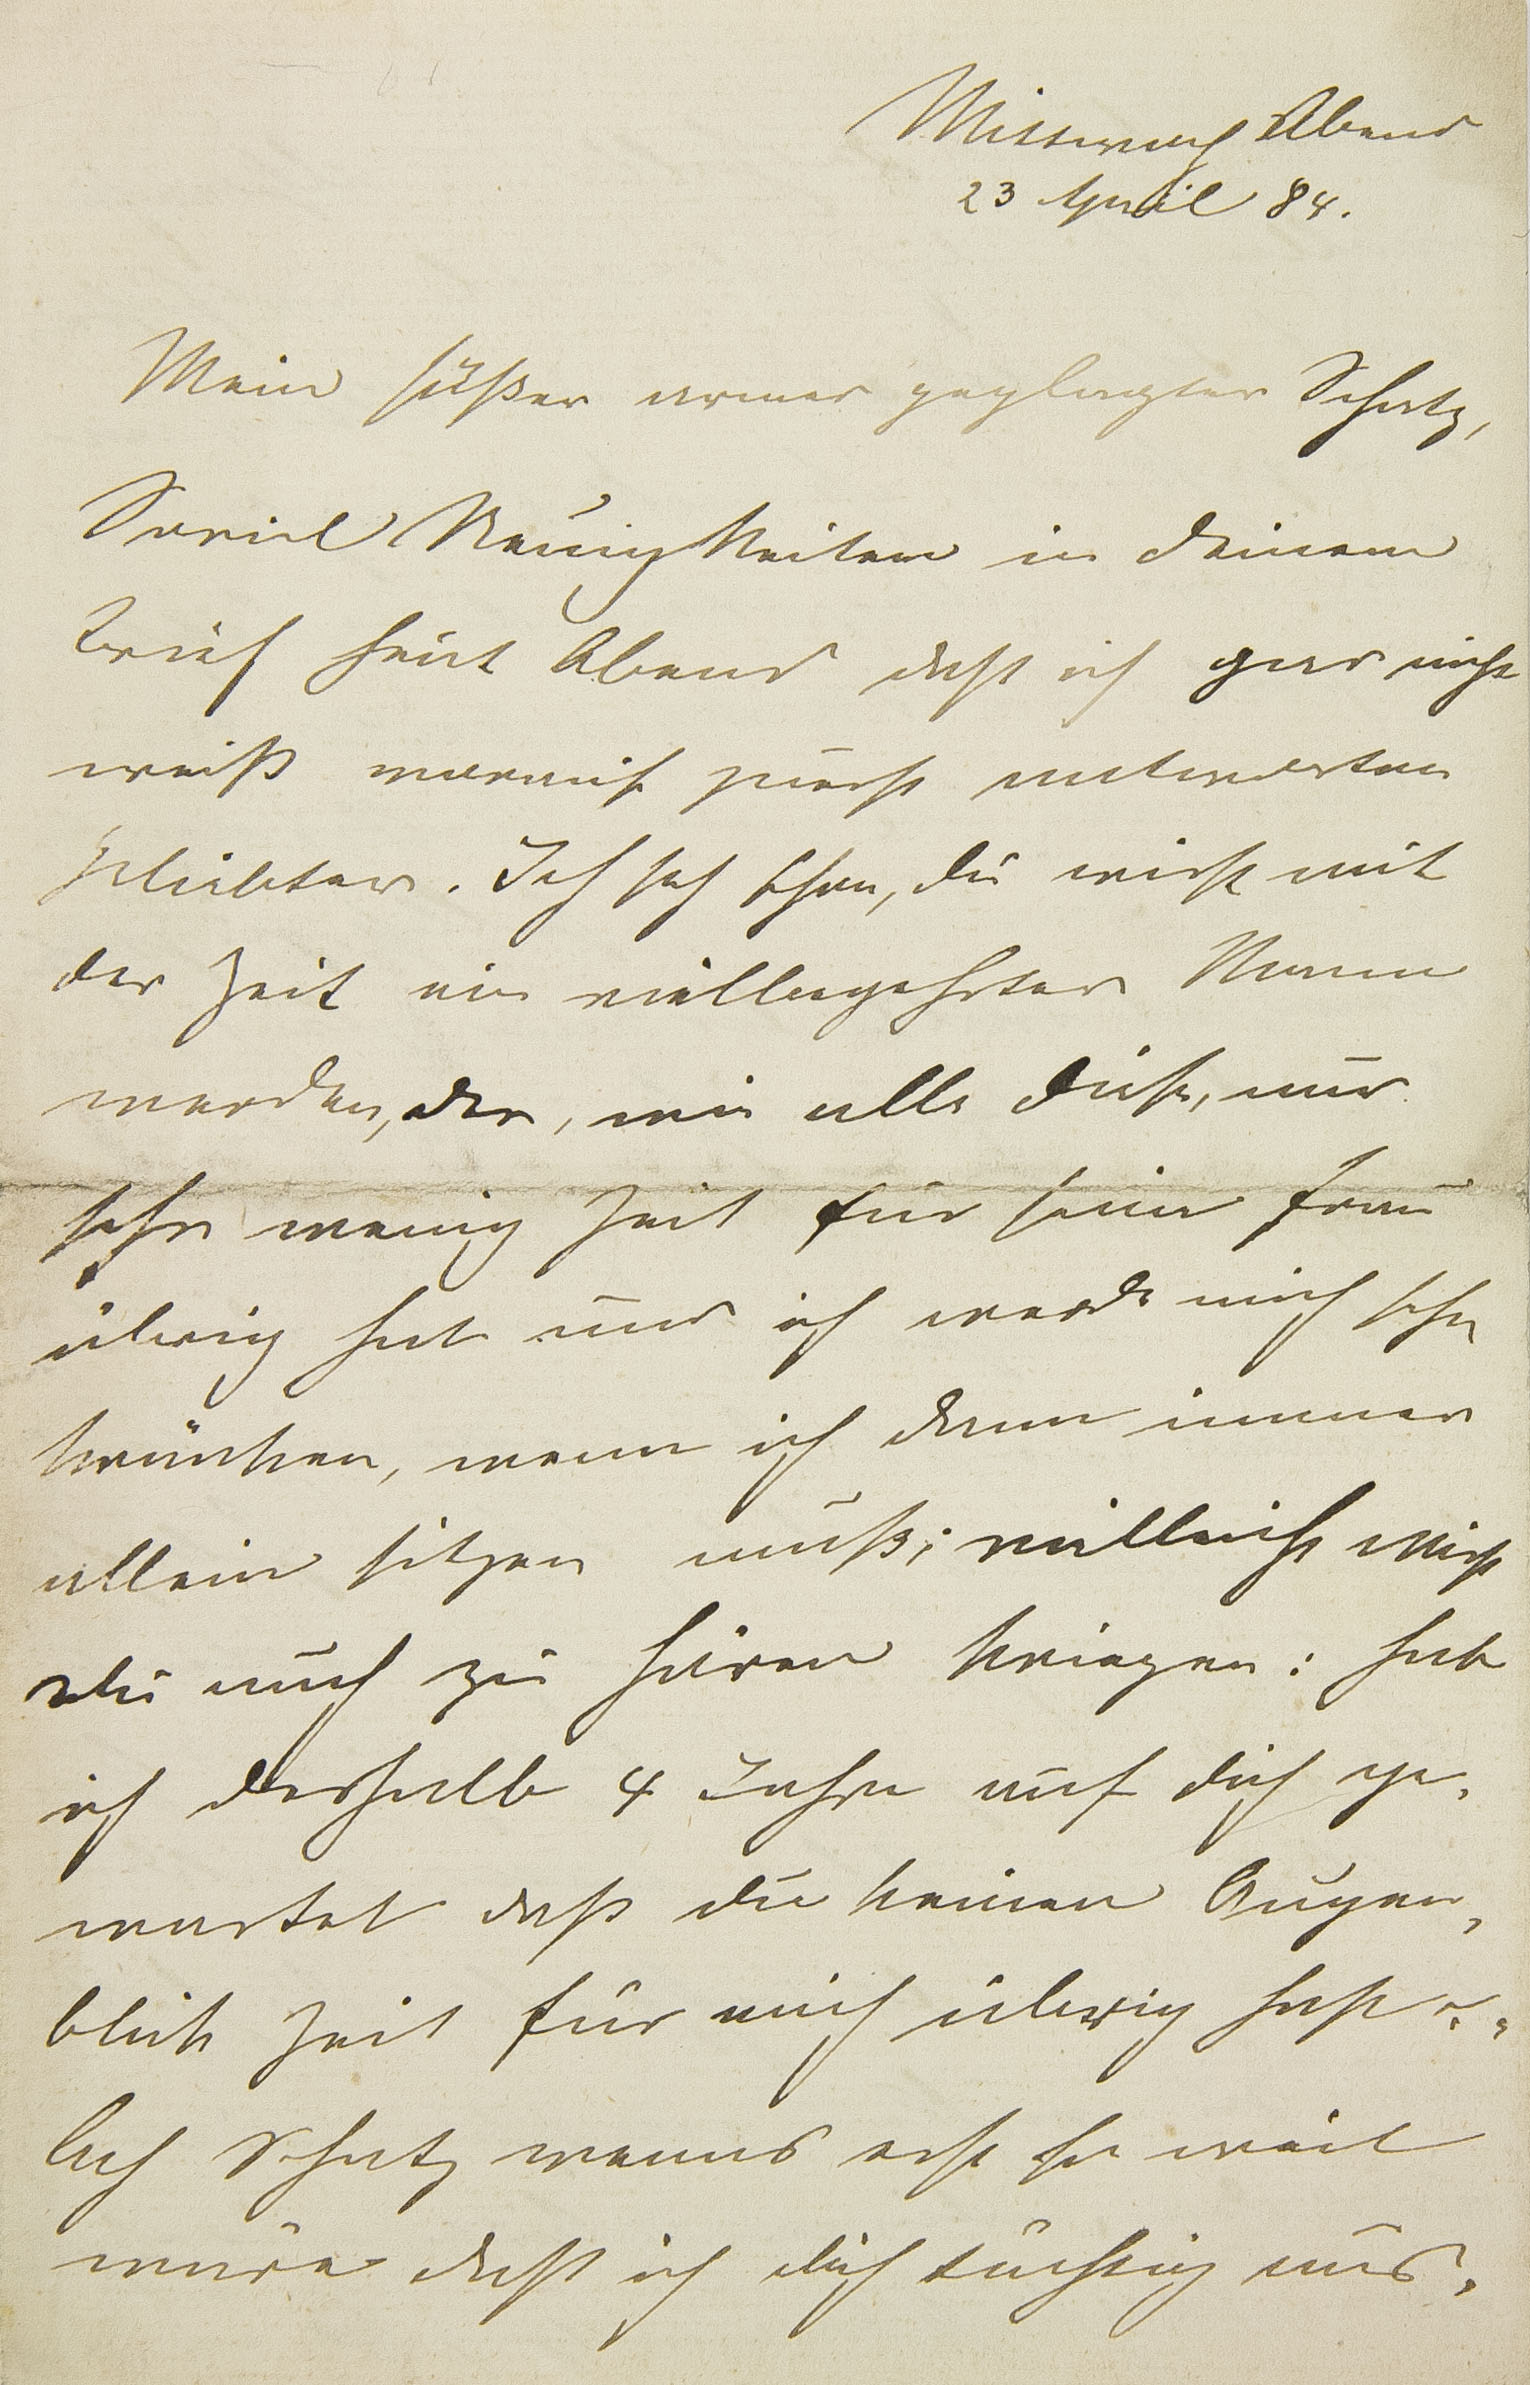 Mittwoch Abend
23 April 84.
Mein süßer armer geplagter Schatz,
Soviel Neuigkeiten in deinem
Brief heut Abend daß ich gar nicht
weiß worauf zuerst antworten
Geliebter. Ich seh schon, du wirst mit
der Zeit ein vielbegehrter Mann
werden, der, wie alle diese, nur
sehr wenig Zeit für seine Frau
übrig hat und ich werde mich sehr
kränken, wenn ich dann immer
allein sitzen muß; vielleicht wirst
du auch zu hören kriegen: hab
ich deshalb 4 Jahre auf dich ge-
wartet daß du keinen Augen-
blick Zeit für mich übrig hast
Ach Schatz wenns erst so weit
wäre daß ich dich tüchtig aus-